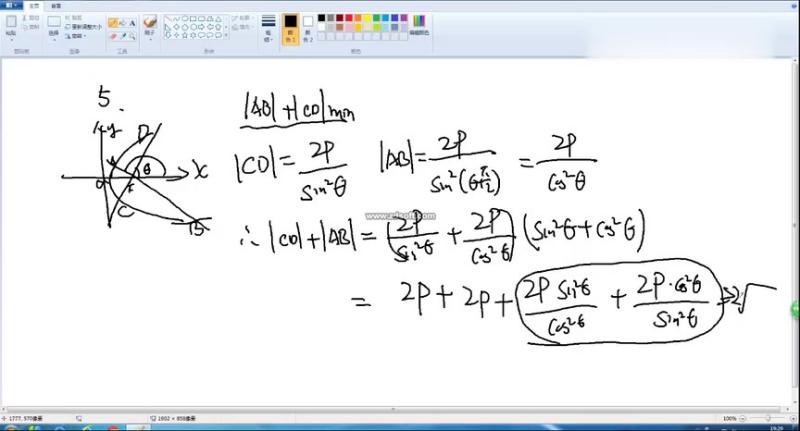 主页
粘贴
选择
重新调整大小
旋转
刷子
形状
粗细
颜色 1
颜色 2
编辑颜色
剪贴板
图像
工具
形状
颜色
5.
y D
x
O F θ
C
B
|AB|+|CD|min
|CD|= 2P/sin²θ |AB|= 2P/sin²(θ+π/2) = 2P/cos²θ
∴ |CD|+|AB| = (2P/sin²θ + 2P/cos²θ)(sin²θ+cos²θ)
= 2P+2P+ 2P sin²θ/cos²θ + 2P·cos²θ/sin²θ ≥2√
1777, 570像素
1902 × 858像素
100%
19:29